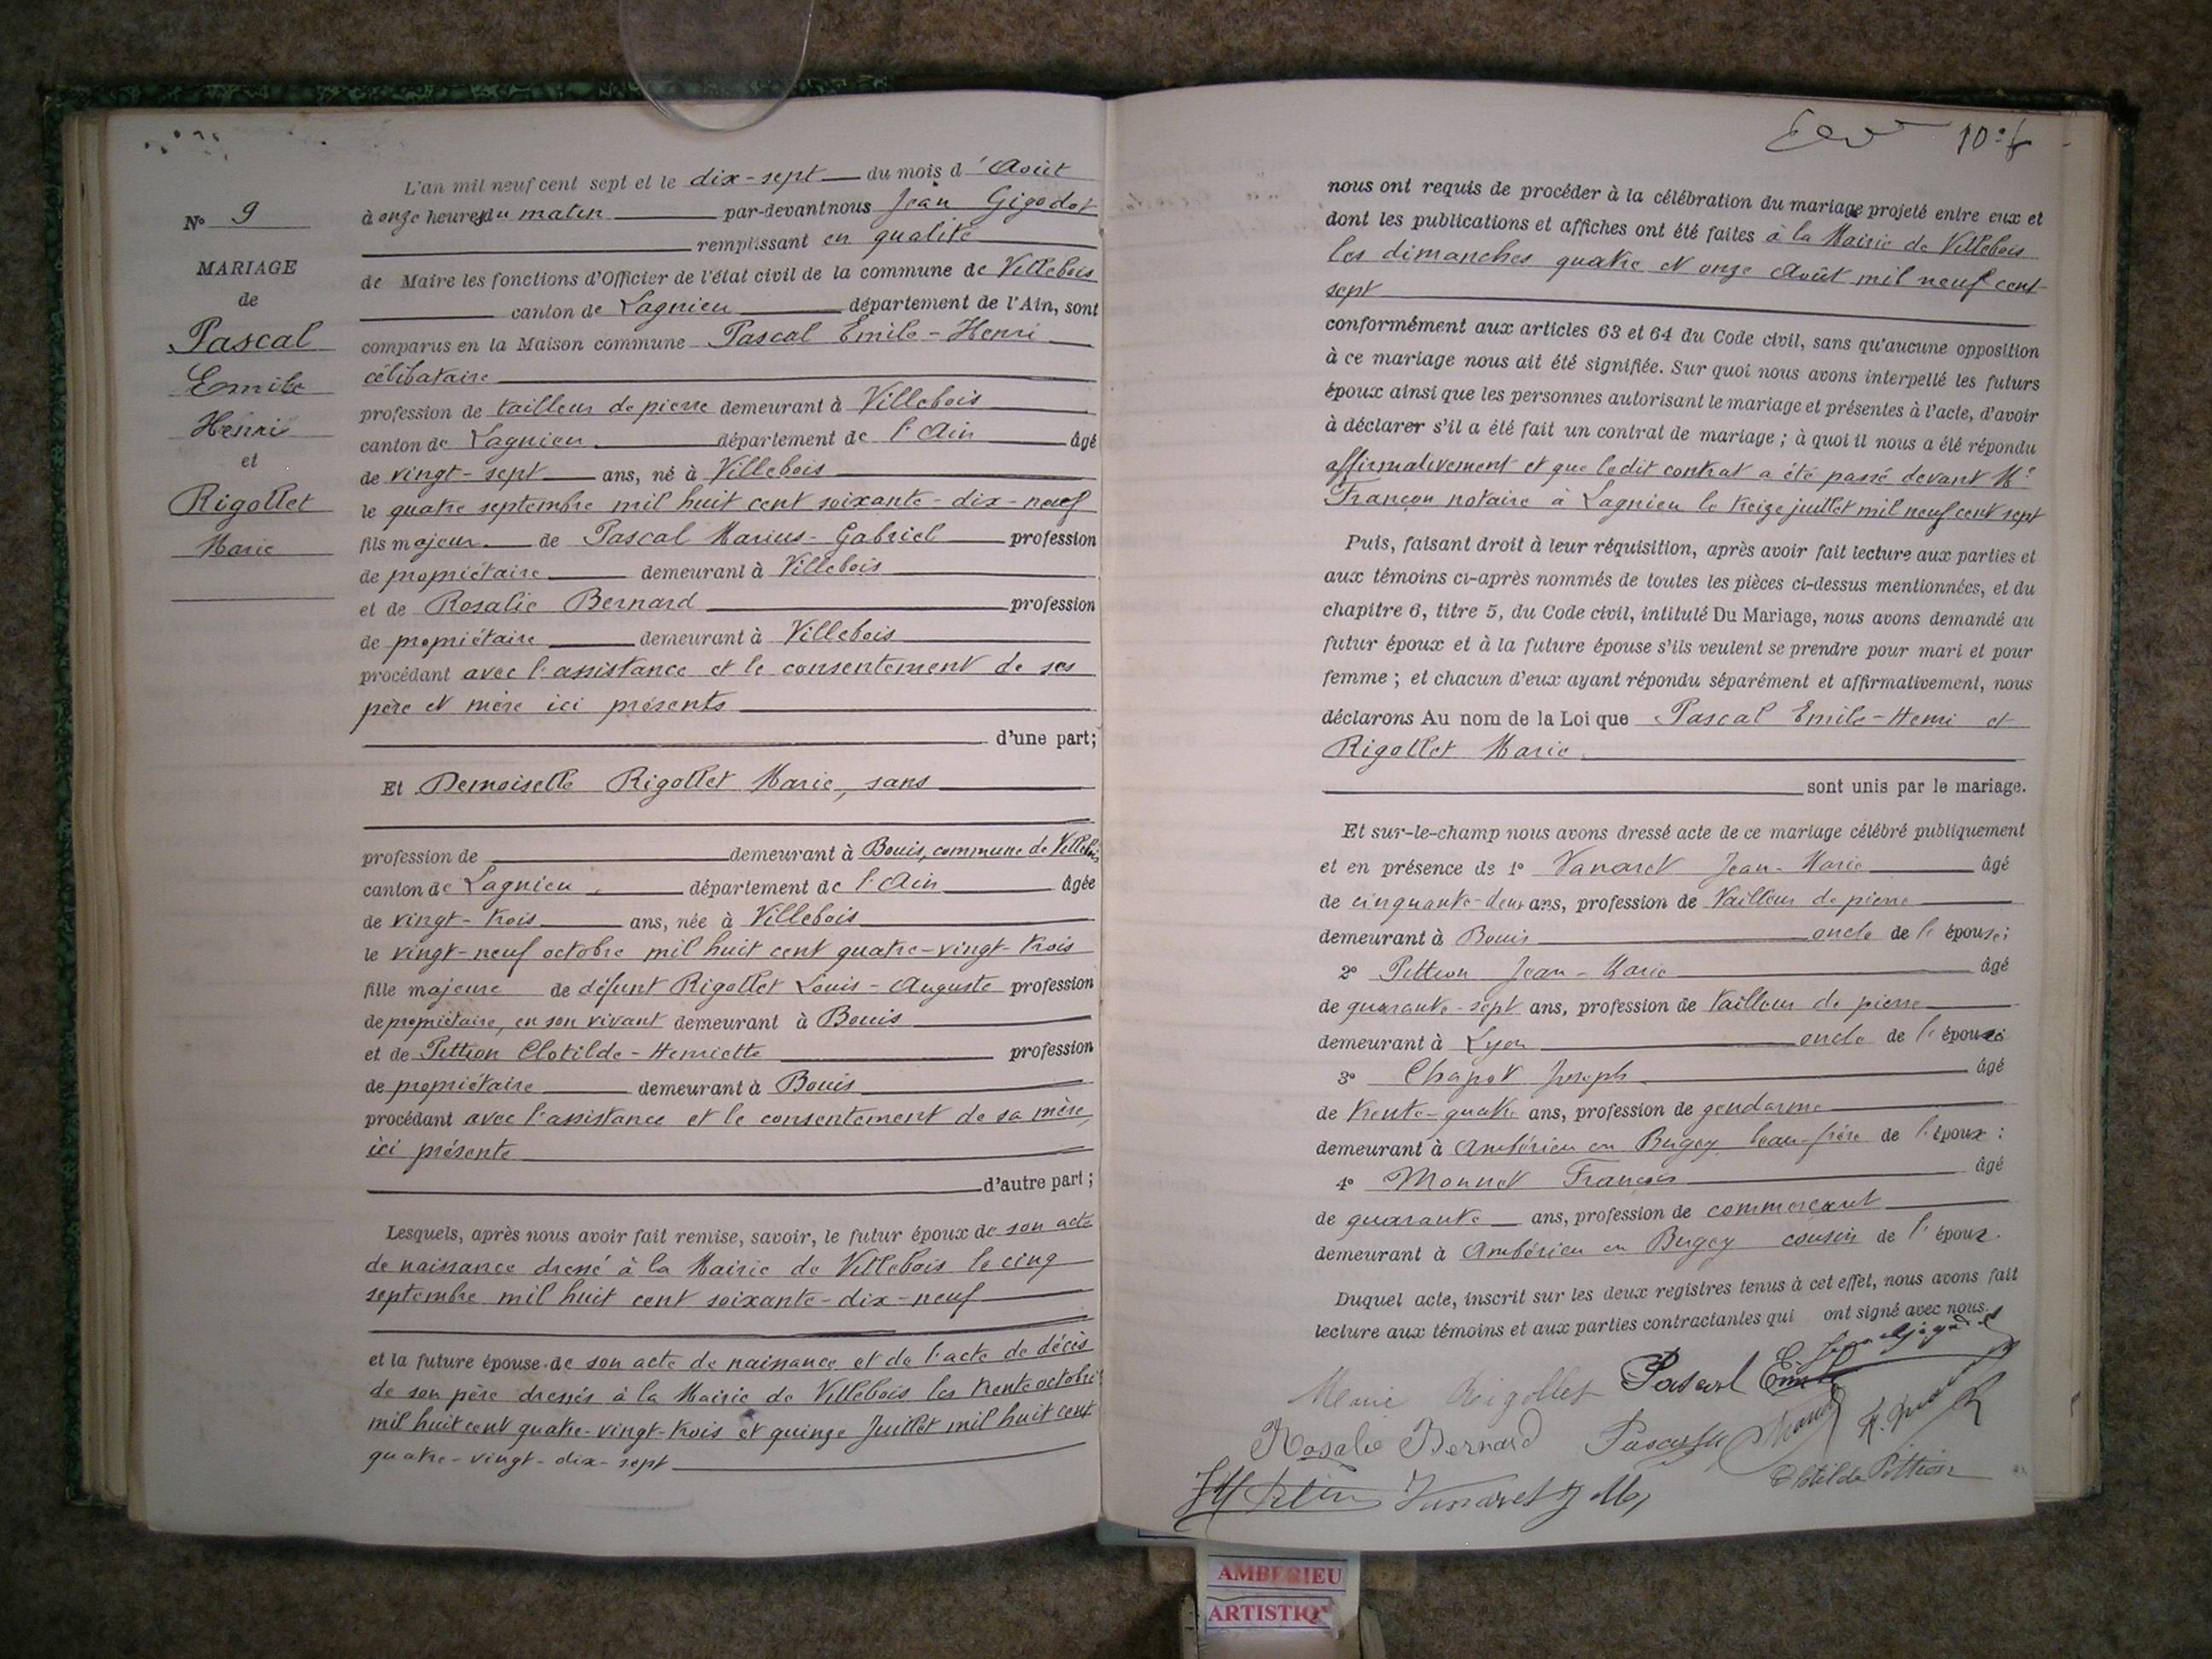 N° 9
MARIAGE
de
Pascal
Emile
Henri
et
Rigollet
Marie
L'an mil neuf cent sept et le dix-sept du mois d'Août
à onze heures du matin par-devant nous Jean Gigodot
remplissant en qualité
de Maire les fonctions d'Officier de l'état civil de la commune de Villebois
canton de Lagnieu département de l'Ain, sont
comparus en la Maison commune Pascal Emile-Henri
célibataire
profession de tailleur de pierre demeurant à Villebois
canton de Lagnieu département de l'Ain âgé
de vingt-sept ans, né à Villebois
le quatre septembre mil huit cent soixante-dix-neuf
fils majeur de Pascal Marius-Gabriel profession
de propriétaire demeurant à Villebois
et de Rosalie Bernard profession
de propriétaire demeurant à Villebois
procédant avec l'assistance et le consentement de ses
père et mère ici présents
d'une part;
Et Demoiselle Rigollet Marie, sans
profession de demeurant à Bouis, commune de Villebois
canton de Lagnieu département de l'Ain âgée
de vingt-trois ans, née à Villebois
le vingt-neuf octobre mil huit cent quatre-vingt-trois
fille majeure de défunt Rigollet Louis-Auguste profession
de propriétaire, en son vivant demeurant à Bouis
et de Pittion Clotilde-Henriette profession
de propriétaire demeurant à Bouis
procédant avec l'assistance et le consentement de sa mère,
ici présente
d'autre part;
Lesquels, après nous avoir fait remise, savoir, le futur époux de son acte
de naissance dressé à la Mairie de Villebois le cinq
septembre mil huit cent soixante-dix-neuf
et la future épouse de son acte de naissance et de l'acte de décès
de son père dressés à la Mairie de Villebois les trente octobre
mil huit cent quatre-vingt-trois et quinze Juillet mil huit cent
quatre-vingt-dix-sept
nous ont requis de procéder à la célébration du mariage projeté entre eux et
dont les publications et affiches ont été faites à la Mairie de Villebois
les dimanches quatre et onze Août mil neuf cent
sept
conformément aux articles 63 et 64 du Code civil, sans qu'aucune opposition
à ce mariage nous ait été signifiée. Sur quoi nous avons interpellé les futurs
époux ainsi que les personnes autorisant le mariage et présentes à l'acte, d'avoir
à déclarer s'il a été fait un contrat de mariage ; à quoi il nous a été répondu
affirmativement et que ledit contrat a été passé devant Me
Françon notaire à Lagnieu le treize juillet mil neuf cent sept
Puis, faisant droit à leur réquisition, après avoir fait lecture aux parties et
aux témoins ci-après nommés de toutes les pièces ci-dessus mentionnées, et du
chapitre 6, titre 5, du Code civil, intitulé Du Mariage, nous avons demandé au
futur époux et à la future épouse s'ils veulent se prendre pour mari et pour
femme ; et chacun d'eux ayant répondu séparément et affirmativement, nous
déclarons Au nom de la Loi que Pascal Emile-Henri et
Rigollet Marie
sont unis par le mariage.
Et sur-le-champ nous avons dressé acte de ce mariage célébré publiquement
et en présence de 1° Vanaret Jean-Marie âgé
de cinquante-deux ans, profession de tailleur de pierre
demeurant à Bouis oncle de l'épouse;
2° Pittion Jean-Marie âgé
de quarante-sept ans, profession de tailleur de pierre
demeurant à Lyon oncle de l'épouse
3° Chapot Joseph âgé
de trente-quatre ans, profession de gendarme
demeurant à Ambérieu en Bugey beau-frère de l'époux :
4° Monnet François âgé
de quarante ans, profession de commerçant
demeurant à Ambérieu en Bugey cousin de l'époux.
Duquel acte, inscrit sur les deux registres tenus à cet effet, nous avons fait
lecture aux témoins et aux parties contractantes qui ont signé avec nous.
Marie Rigollet Pascal Emile
Rosalie Bernard
Vanaret Clotilde Pittion
AMBERIEU
ARTISTIQ